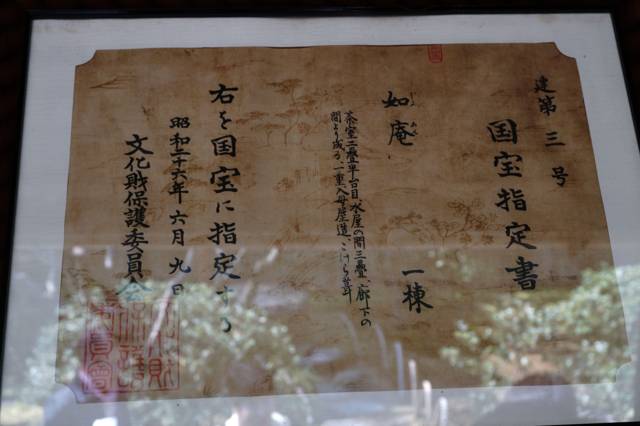 建第三号
国宝指定書
如庵 一棟
じょあん
茶室二畳半台目、水屋の間三畳、廊下の
間より成る、一重入母屋造、こけら葺
右を国宝に指定する
昭和二十六年六月九日
文化財保護委員会